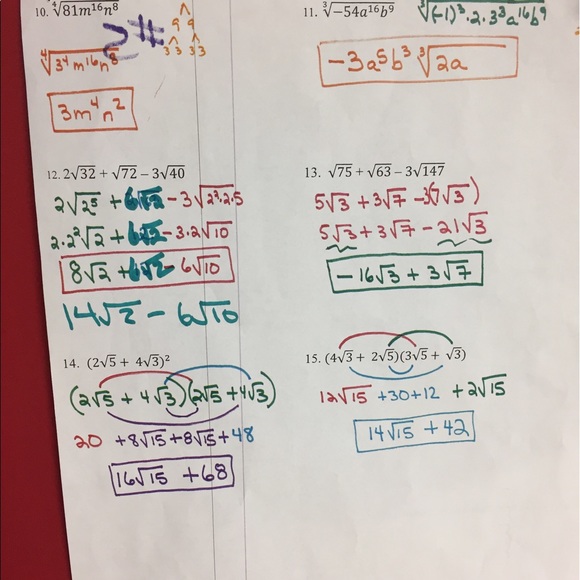 10. ⁴√81m¹⁶n⁸
9 9
3 3 3 3
⁴√3⁴m¹⁶n⁸
3m⁴n²
11. ³√−54a¹⁶b⁹
³√(-1)³·2·3³a¹⁶b⁹
-3a⁵b³ ³√2a
12. 2√32 + √72 − 3√40
2√2⁵ + 6√2 - 3√2²·2·5
2·2²√2 + 6√2 - 3·2√10
8√2 + 6√2 - 6√10
14√2 - 6√10
13. √75 + √63 − 3√147
5√3 + 3√7 - 3(7√3)
5√3 + 3√7 - 21√3
-16√3 + 3√7
14. (2√5 + 4√3)²
(2√5 + 4√3)(2√5 + 4√3)
20 + 8√15 + 8√15 + 48
16√15 + 68
15. (4√3 + 2√5)(3√5 + √3)
12√15 + 30 + 12 + 2√15
14√15 + 42